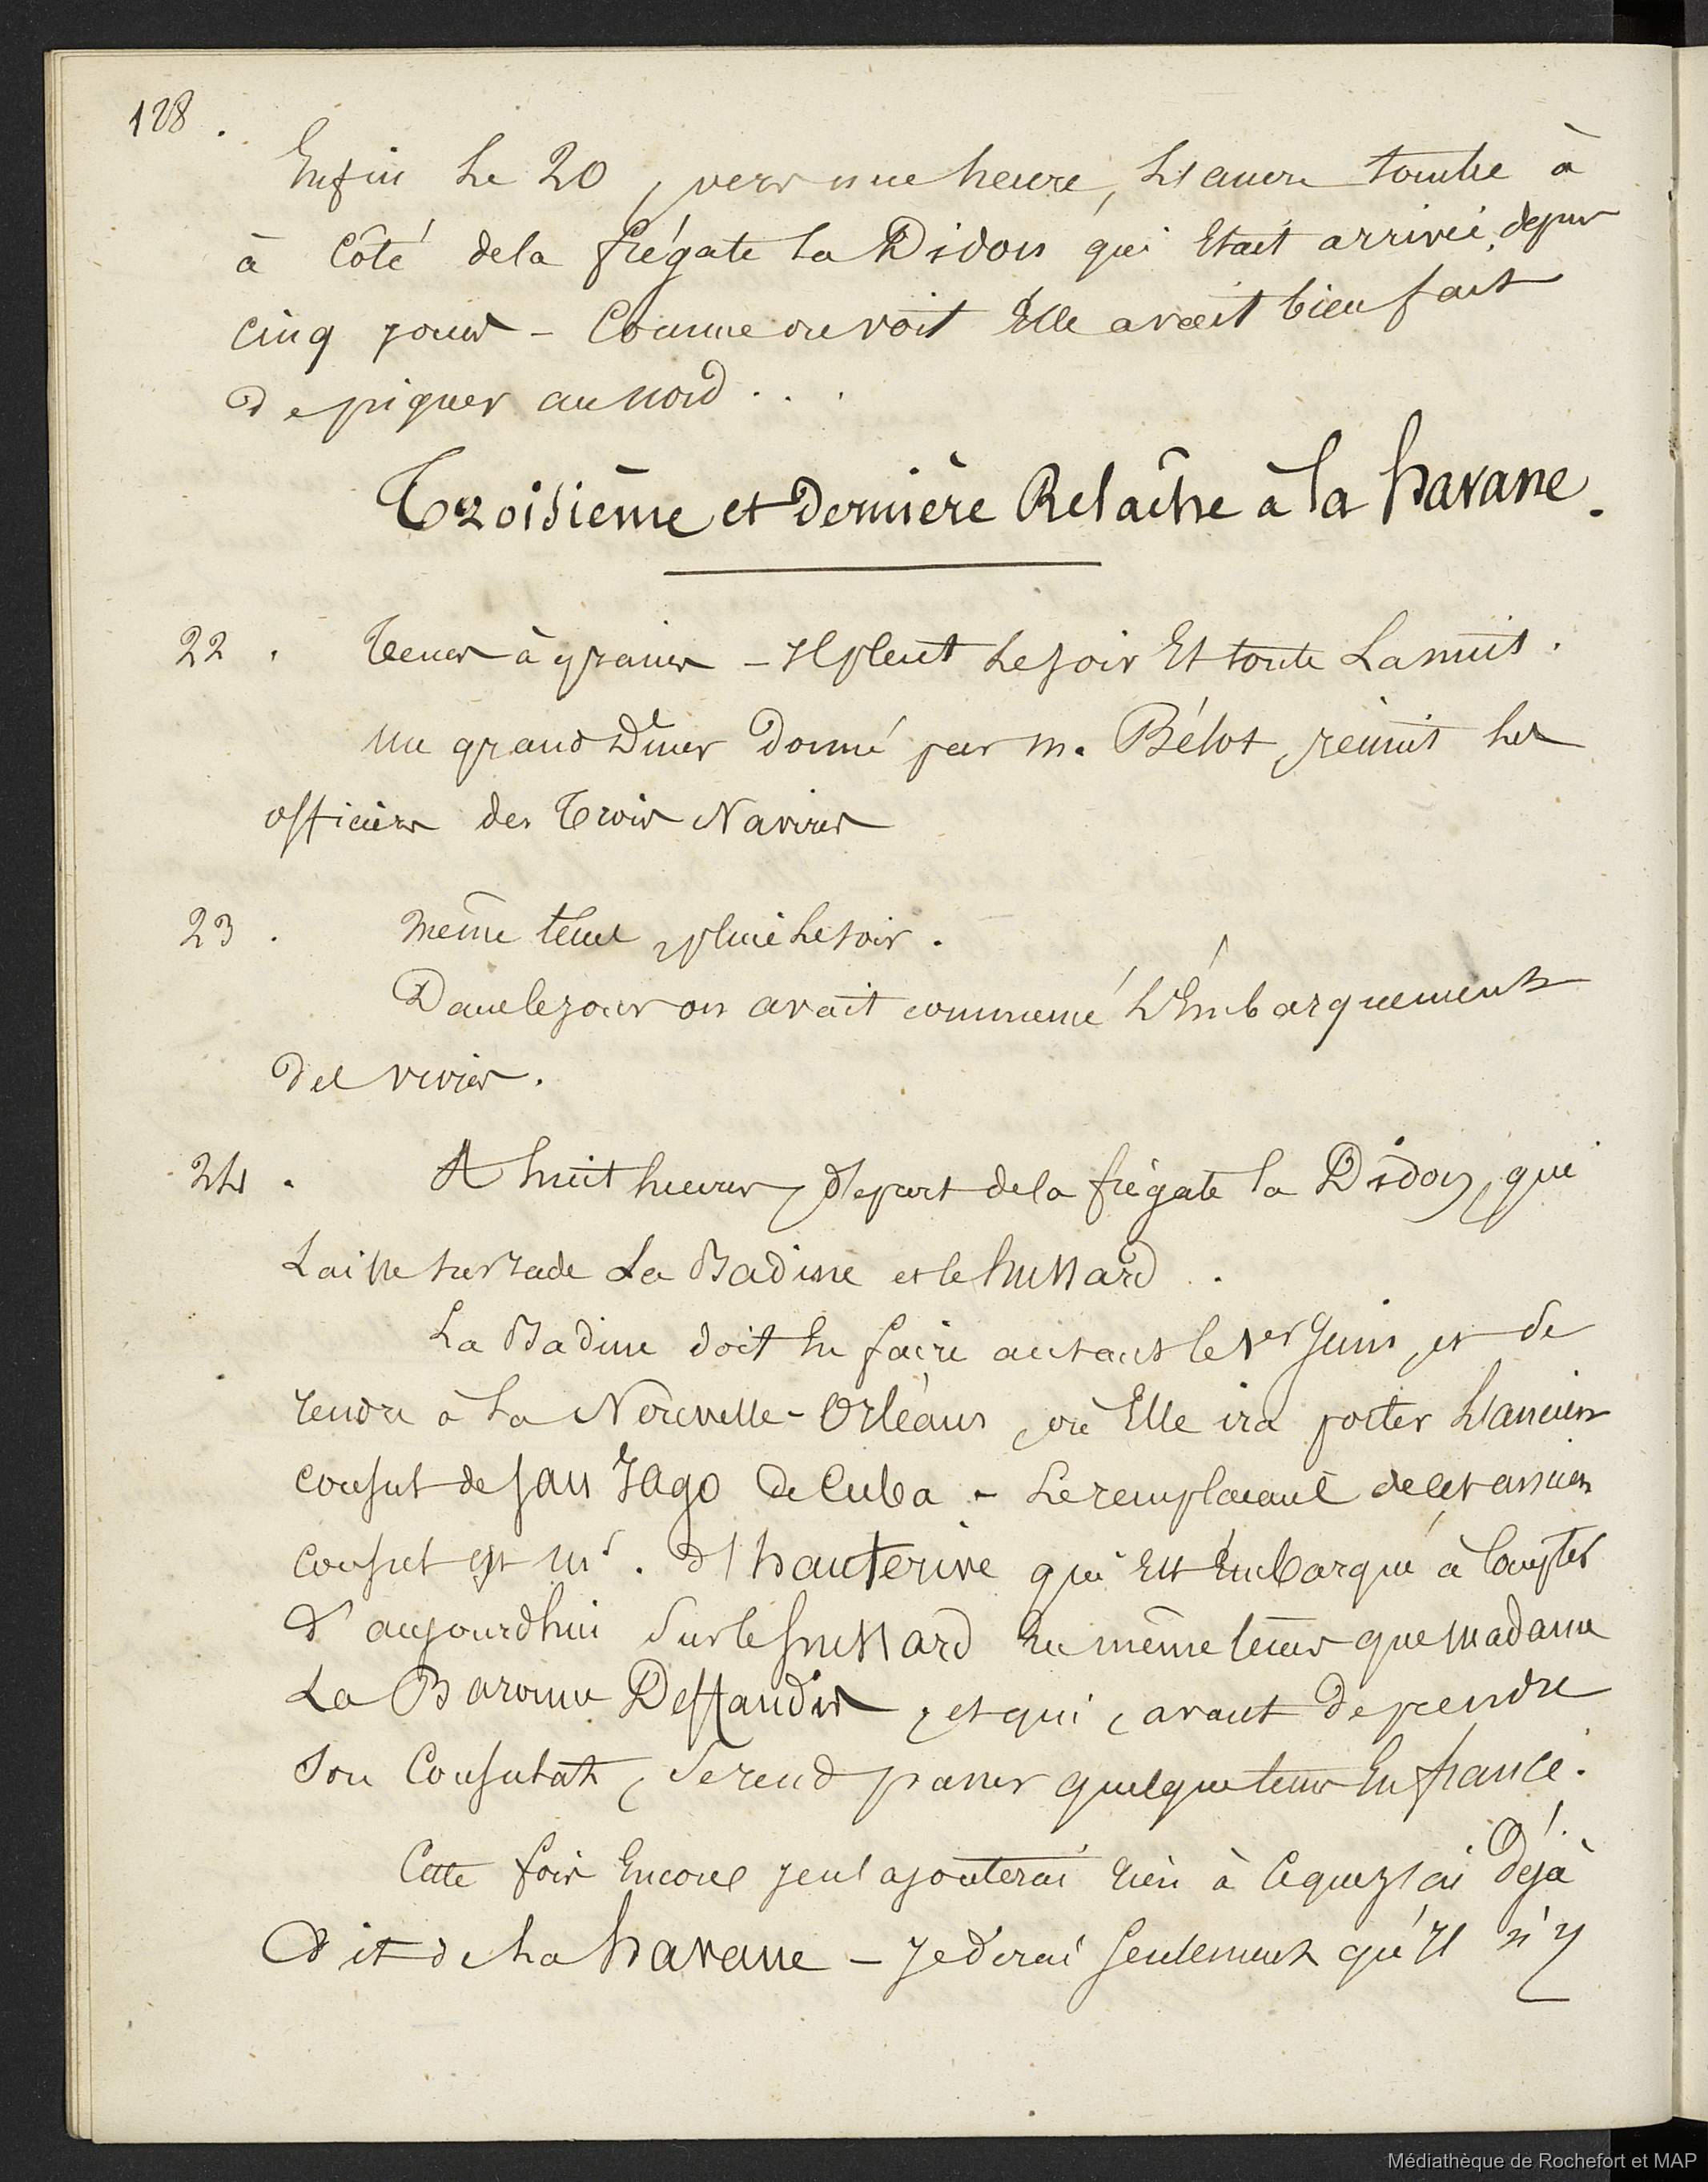 128.
Enfin le 20, vers une heure, l'ancre tombe à
à côté de la frégate la Didon qui était arrivée depuis
cinq jours - Comme on voit Elle avait bien fait
de piquer au nord . . .
Troisième et Dernière Relâche à la havane.
22. Temps à grains - Il pleut le soir Et toute La nuit.
Un grand Dîner Donné par m. Bélot, réunit les
officiers des Trois Navires
23. même temps, pluie le soir.
Dans le jour on avait commencé l'Embarquement
des vivres.
24. A huit heures, départ de la frégate la Didon, qui
Laisse sur rade La Badine et le hussard.
La Badine doit en faire autant le 1er Juin, et se
rendre à La Nouvelle-Orléans, où Elle ira porter l'ancien
consul de San Yago de Cuba - Le remplaçant de cet ancien
consul est mr. d'hauterive qui Est Embarqué à compter
d'aujourdhui sur le hussard En même temps que madame
La Baronne Deffaudis, et qui, avant de prendre
son Consulat, se rend passer quelque temps En france.
Cette fois Encore je n'ajouterai rien à ce que j'ai Déjà
Dit de La havane - Je dirai seulement qu'Il n'y
Médiathèque de Rochefort et MAP